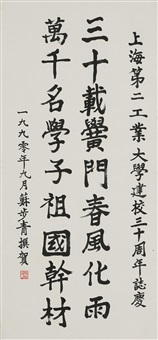 上海第二工業大學建校三十周年誌慶
三十載黌門春風化雨
萬千名學子祖國幹材
一九九零年九月蘇步青撰賀